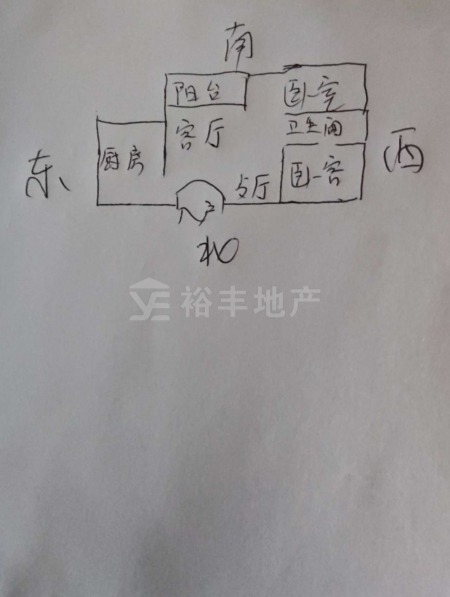 南
阳台
卧室
客厅
卫生间
东
厨房
西
卧客
厅
北
裕丰地产